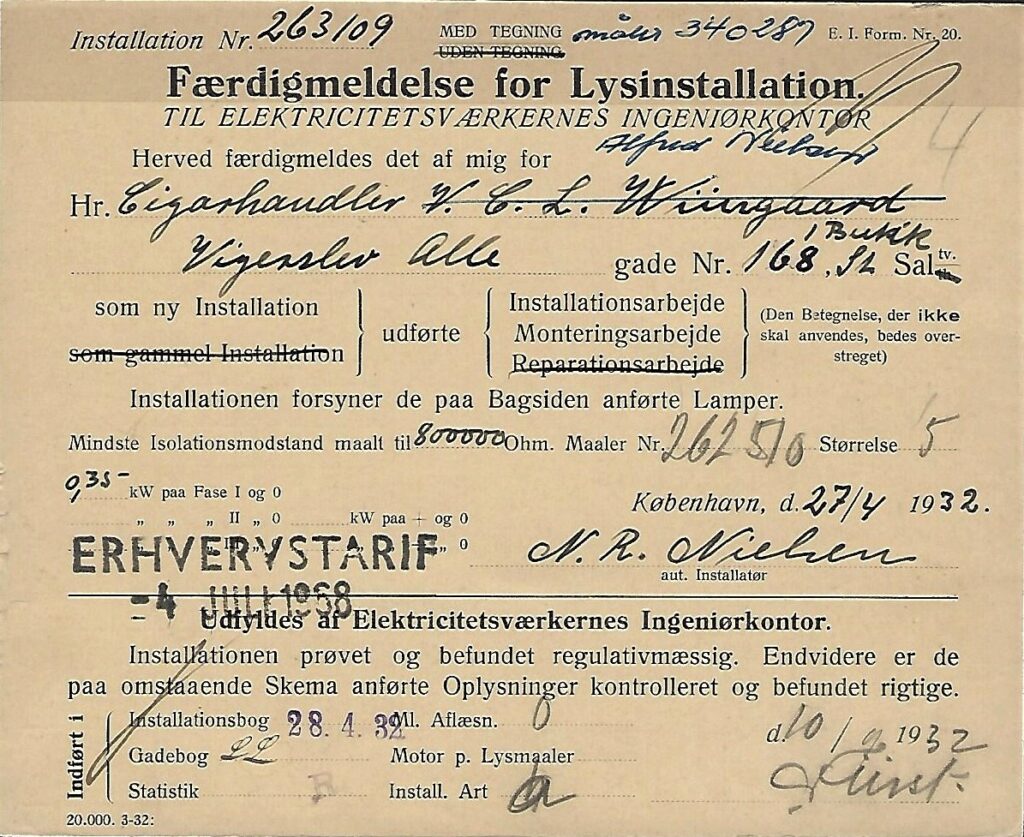 Installation Nr. 263109 MED TEGNING måler 340287 E. I. Form. Nr. 20.
UDEN TEGNING
Færdigmeldelse for Lysinstallation.
TIL ELEKTRICITETSVÆRKERNES INGENIØRKONTOR
4
Alfred Nielsen
Herved færdigmeldes det af mig for
Hr. Cigarhandler V. C. L. Wiingaard
1 Butik
Vigerslev Alle gade Nr. 168, St Sal tv. th.
som ny Installation
som gammel Installation
udførte
Installationsarbejde
Monteringsarbejde
Reparationsarbejde
(Den Betegnelse, der ikke
skal anvendes, bedes over-
streget)
Installationen forsyner de paa Bagsiden anførte Lamper.
Mindste Isolationsmodstand maalt til 800000 Ohm. Maaler Nr. 262510 Størrelse 5
0,35 - kW paa Fase I og 0
„ „ „ II „ 0 kW paa + og 0
København, d. 27/4 1932.
„ 0
ERHVERVSTARIF
N. R. Nielsen
aut. Installatør
- 4 JULI 1968
Udfyldes af Elektricitetsværkernes Ingeniørkontor.
Installationen prøvet og befundet regulativmæssig. Endvidere er de
paa omstaaende Skema anførte Oplysninger kontrolleret og befundet rigtige.
Indført i
Installationsbog 28. 4. 32 Ml. Aflæsn. 0
Gadebog LL Motor p. Lysmaaler
d. 10/9 1932
Statistik B Install. Art a
20.000. 3-32: